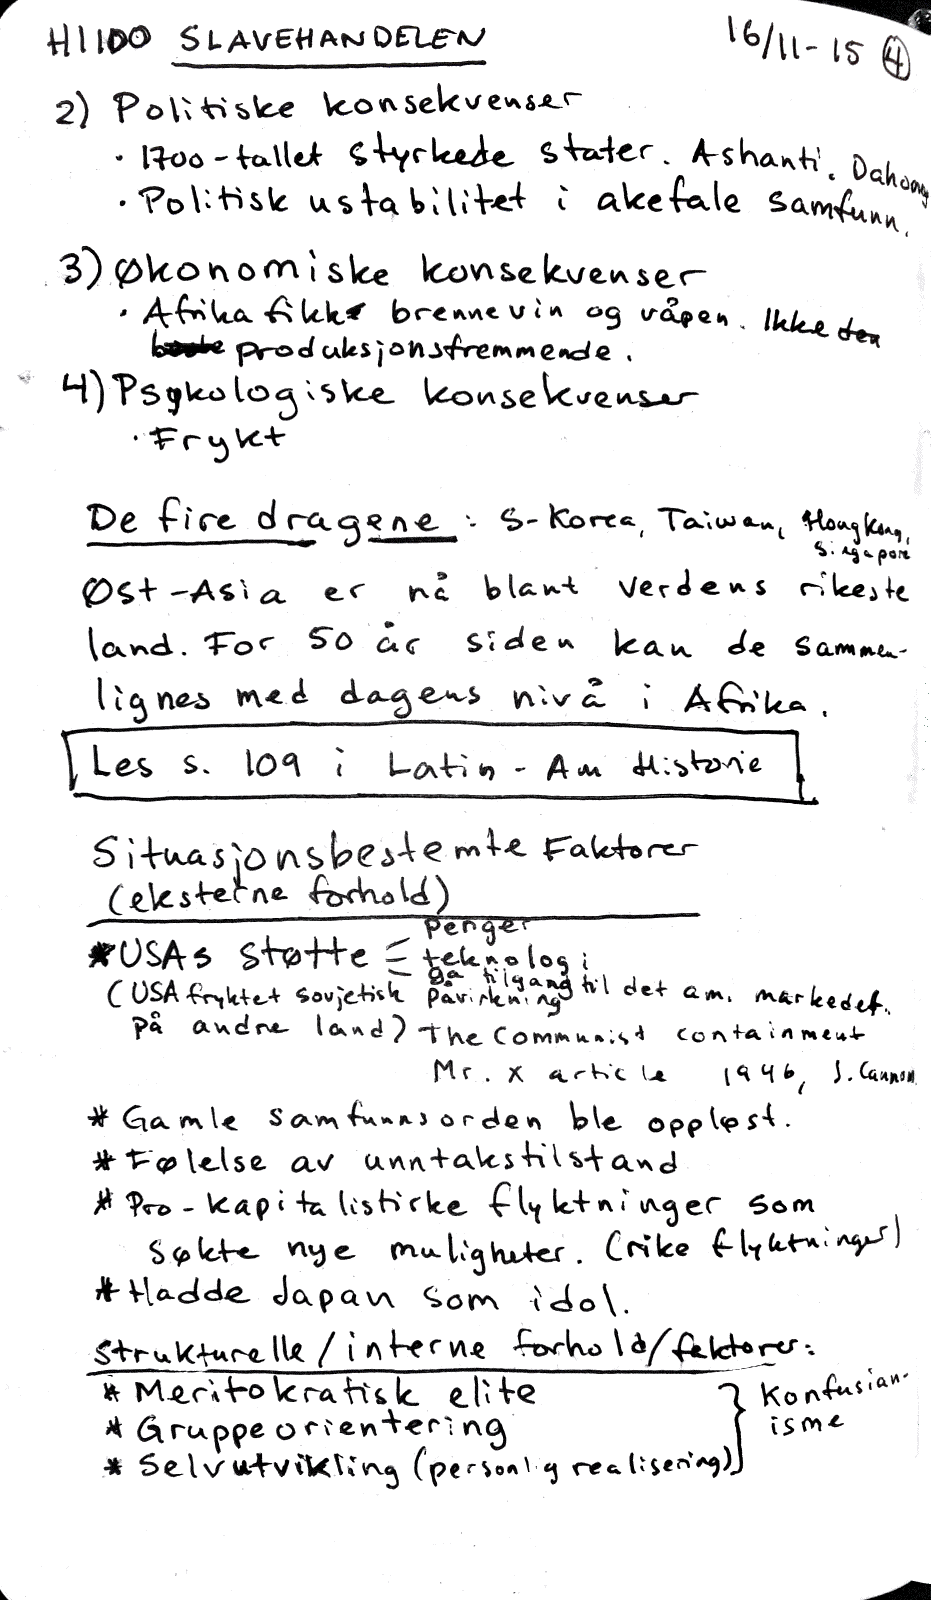 HI100 SLAVEHANDELEN 16/11-15 4
2) Politiske konsekvenser
• 1700-tallet styrkede stater. Ashanti, Dahomey
• Politisk ustabilitet i akefale samfunn.
3) Økonomiske konsekvenser
• Afrika fikk brennevin og våpen. Ikke den
produksjonsfremmende.
4) Psykologiske konsekvenser
• Frykt
De fire dragene : S-Korea, Taiwan, HongKong,
Singapore
Øst-Asia er nå blant verdens rikeste
land. For 50 år siden kan de sammen-
lignes med dagens nivå i Afrika.
Les s. 109 i Latin-Am Historie
Situasjonsbestemte Faktorer
(eksterne forhold)
penger
* USAs støtte = teknologi
ga tilgang til det am. markedet.
(USA fryktet sovjetisk påvirkning
på andre land) The Communist containment
Mr. X article 1946, J. Cannon
* Gamle samfunnsorden ble oppløst.
* Følelse av unntakstilstand
* Pro-kapitalistiske flyktninger som
søkte nye muligheter. (rike flyktninger)
* Hadde Japan som idol.
Strukturelle/interne forhold/faktorer:
* Meritokratisk elite
* Gruppeorientering
* Selvutvikling (personlig realisering)
} Konfusian-
isme